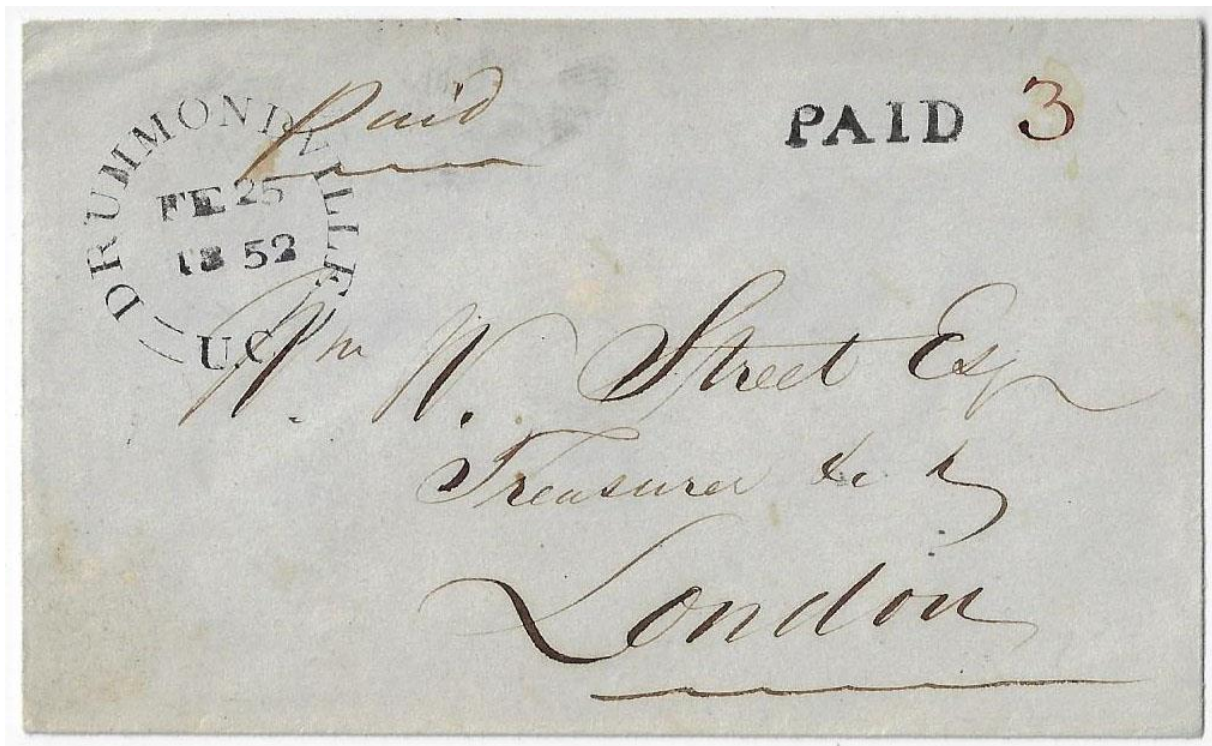 DRUMMONDVILLE
FE 25
1852
U.C.
Paid
PAID 3
Wm W. Street Esq
Treasurer &c &c
London